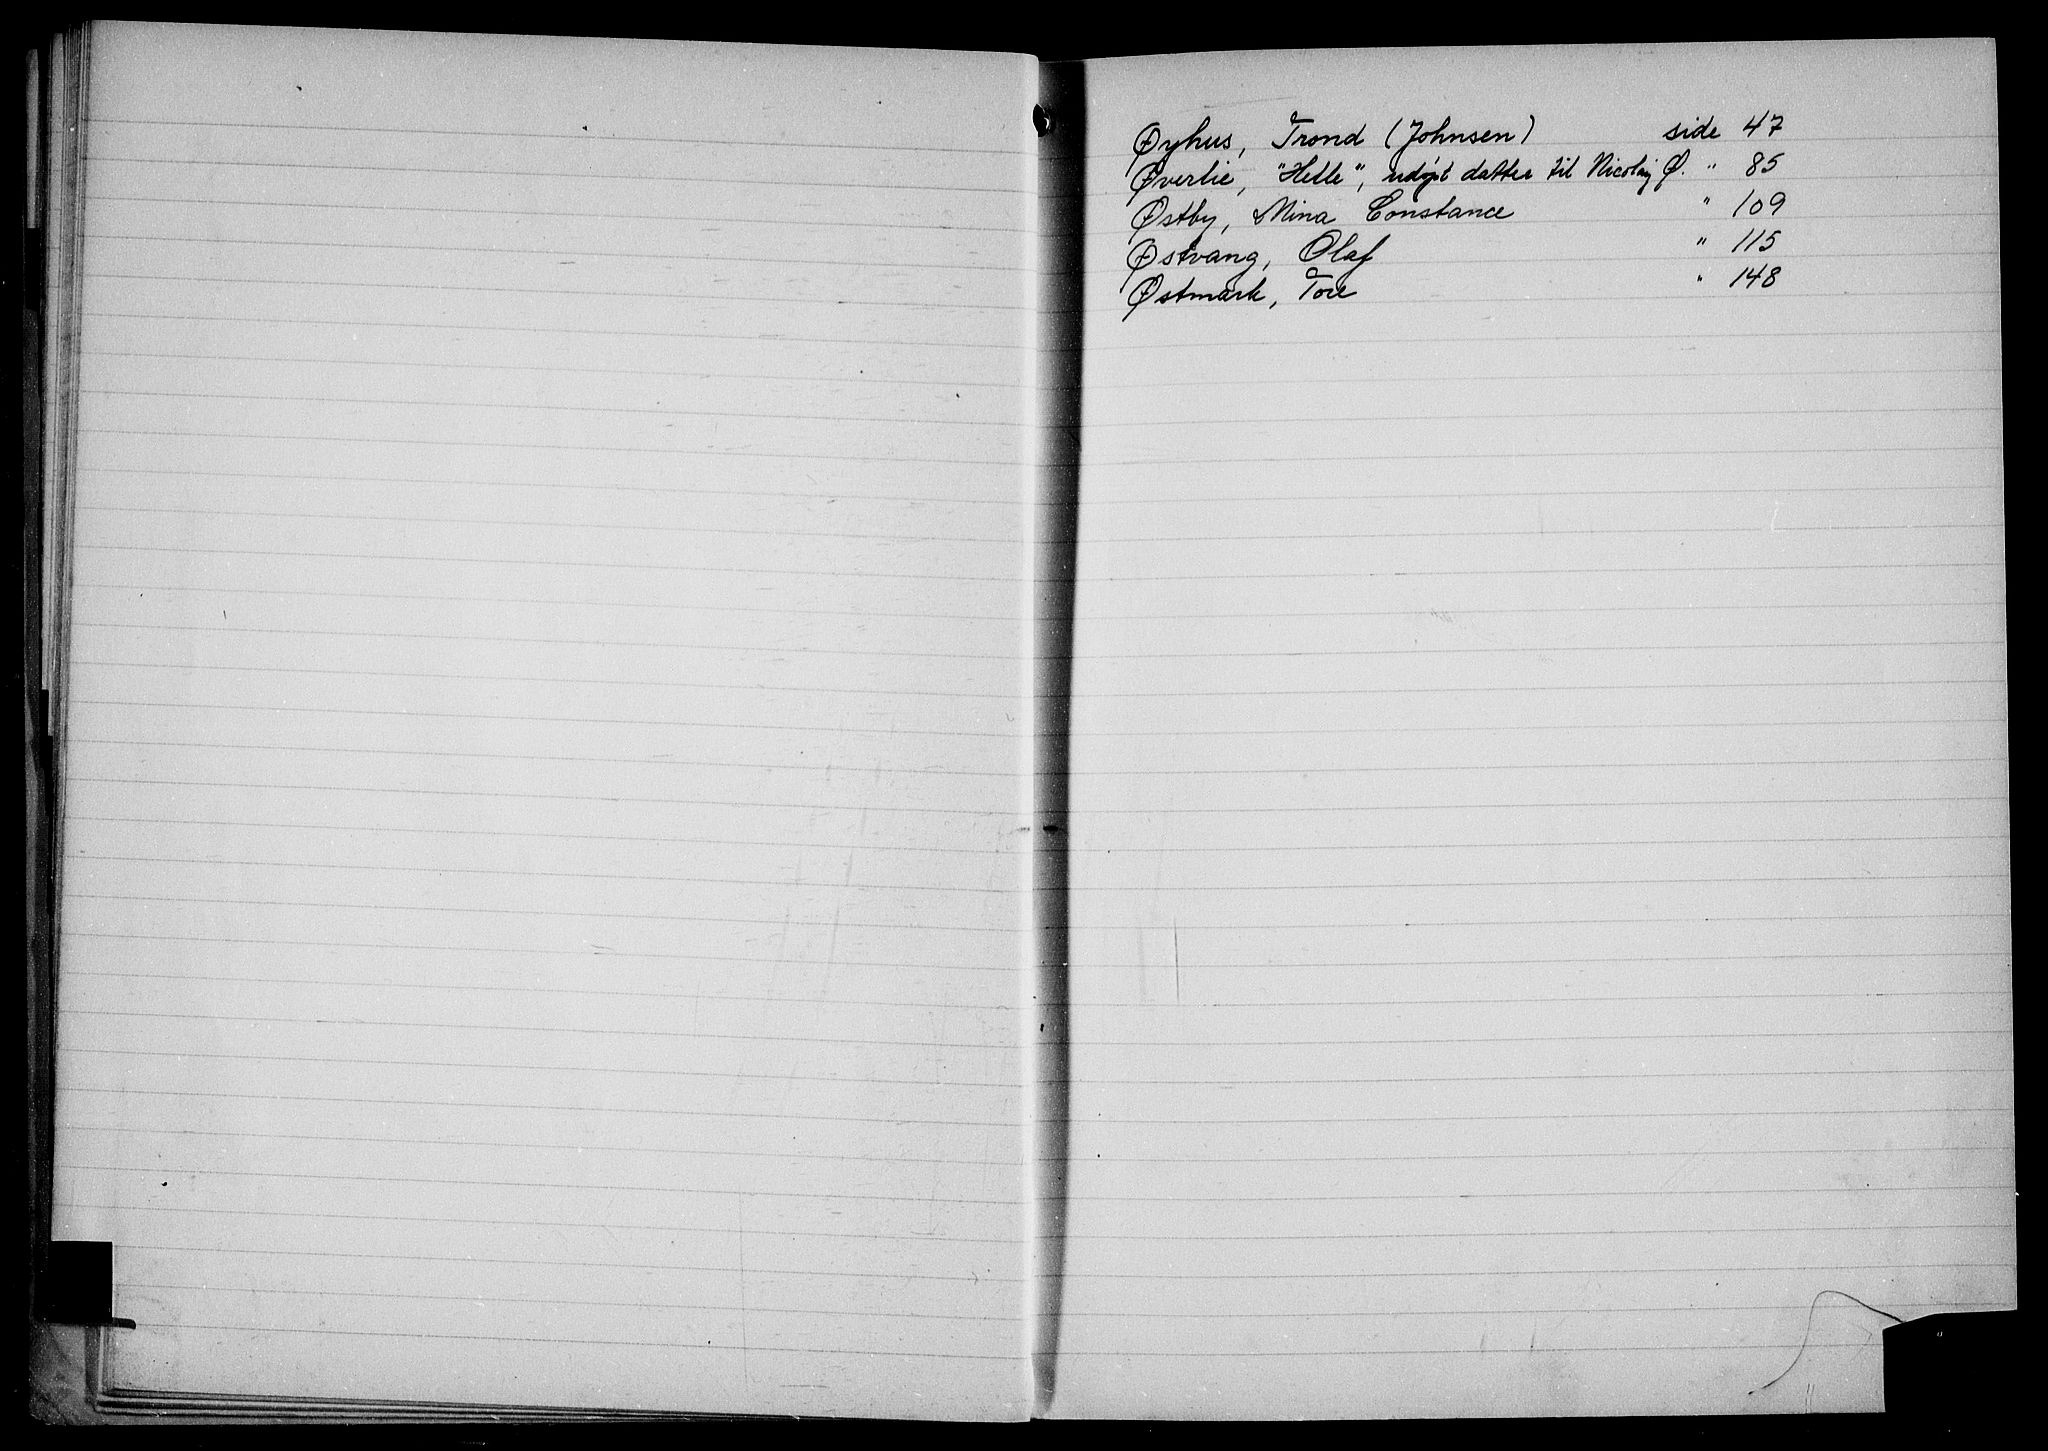 Øyhus, Trond (Johnsen) side 47
Øverlie, "Helle", udøpt datter til Nicolay Ø. " 85
Østby, Mina Constance " 109
Østvang, Olaf " 115
Østmark, Tore " 148